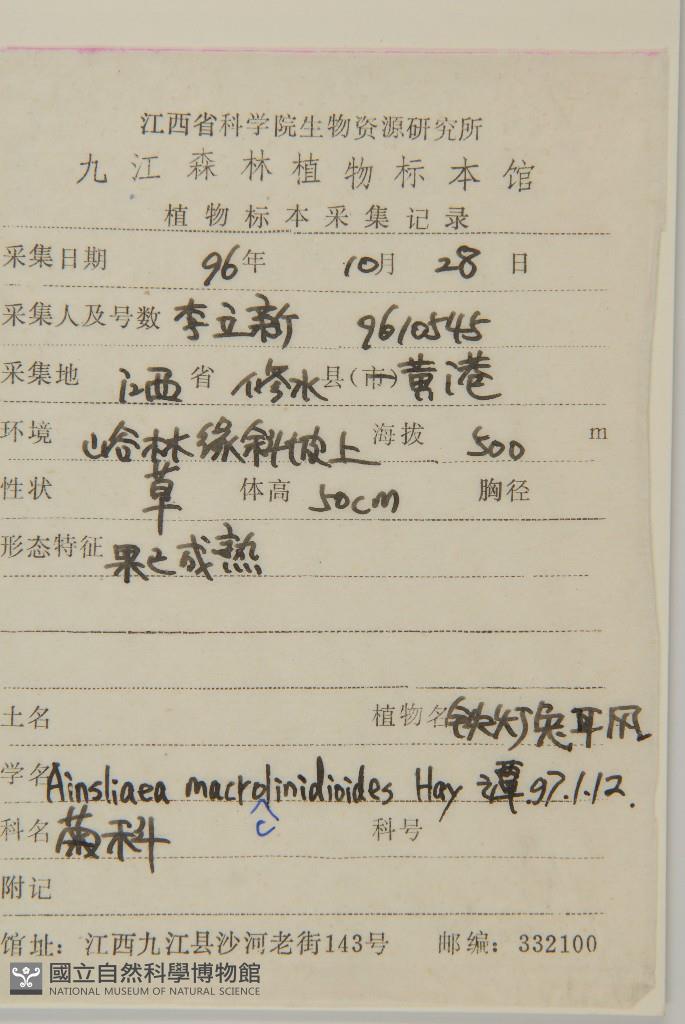 江西省科学院生物资源研究所
九江森林植物标本馆
植物标本采集记录
采集日期 96年 10月 28日
采集人及号数 李立新 9610545
采集地 江西省 修水县(市)黄港
环境 哈林缘斜坡上 海拔 500 m
性状 草 体高 50cm 胸径
形态特征 果已成熟
土名 植物名 铁灯兔耳风
学名 Ainsliaea macrolinidioides Hay 谭.97.1.12.
c
科名 菊科 科号
附记
馆址：江西九江县沙河老街143号 邮编：332100
國立自然科學博物館
NATIONAL MUSEUM OF NATURAL SCIENCE